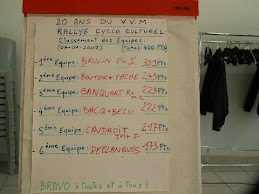 20 ANS DU V.V.M
RALLYE CYCLO CULTUREL:
Classement des Equipes:
(07-09-2007) (Total: 400 PTS)
1ère Equipe: BROCHIN P+J
2ème Equipe: BOUTON+FACHE 243 PTS
3ème Equipe: BANQUART 229 PTS
4ème Equipe: BACQ+BECU 222 PTS
5ème Equipe: CAUDROIT 217 PTS
6ème Equipe: DEPLANQUES 173 PTS
BRAVO à toutes et à Tous!...